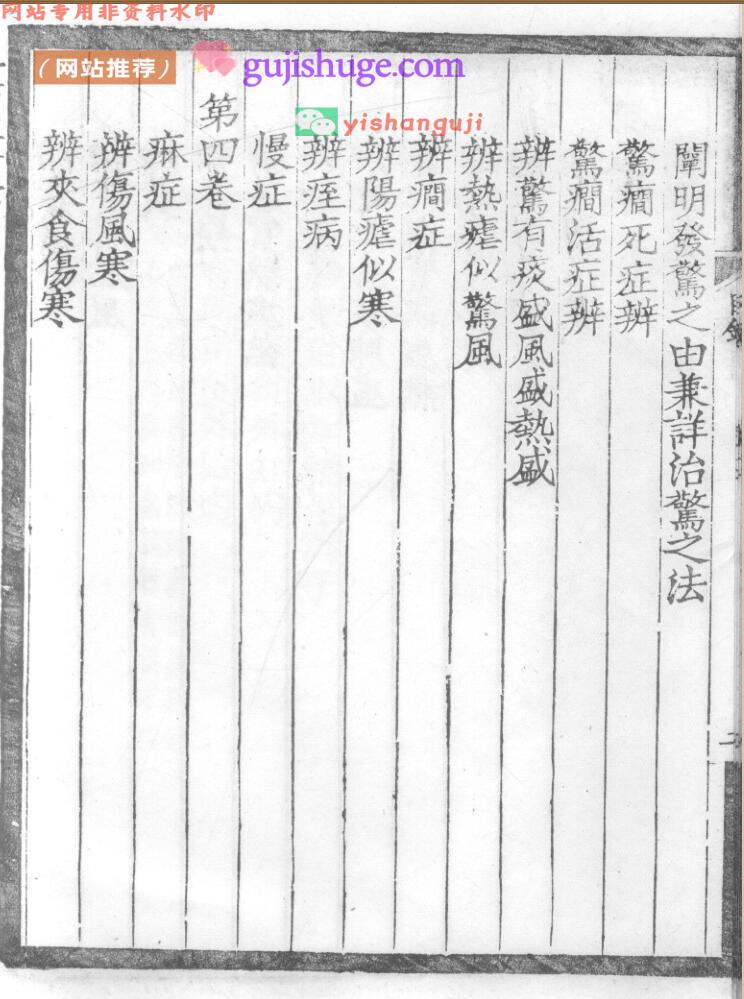 网站专用非资料水印
（网站推荐）
gujishuge.com
yishanguji
闡明發驚之由兼詳治驚之法
驚癎死症辨
驚癎活症辨
辨驚有痰盛風盛熱盛
辨熱瘧似驚風
辨癎症
辨陽瘧似寒
辨痓病
慢症
第四卷
痳症
辨傷風寒
辨夾食傷寒